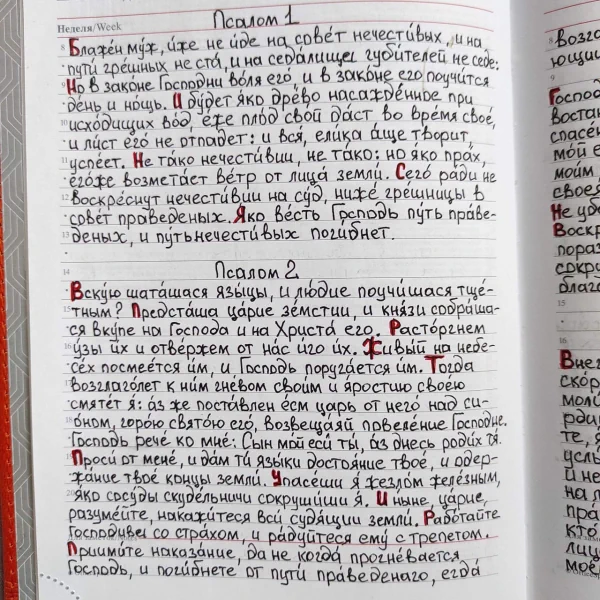 Неделя/Week
Псалом 1
8
Блаже́н му́ж, и́же не и́де на сове́т нечести́вых, и на
пути́ гре́шных не ста́, и на седа́лищеx губи́телей не седе:
9
Но в зако́не Госпо́дни во́ля его́, и в зако́не его поучи́тся
де́нь и но́щь. И бу́дет я́ко дре́во насажде́нное при
10
исхо́дищих во́д, е́же пло́д сво́й да́ст во вре́мя свое́,
и ли́ст его́ не отпаде́т: и вся́, ели́ка а́ще твори́т,
11
успе́ет. Не та́ко нечести́вии, не та́ко: но я́ко пра́х,
его́же возмета́ет ве́тр от лица́ земли́. Сего́ ра́ди не
12
воскре́снут нечести́вии на су́д, ниже́ гре́шницы в
сове́т пра́ведных. Я́ко ве́сть Госпо́дь пу́ть пра́ве-
13
деных, и пу́ть нечести́вых поги́бнет.
14
Псалом 2
Вску́ю шата́шася язы́цы, и лю́дие поучи́шася тще́-
15
тным? Предста́ша ца́рие зе́мстии, и кня́зи собра́ша-
ся вку́пе на Го́спода и на Христа́ его. Расто́ргнем
16
у́зы и́х и отве́ржем от на́с и́го и́х. Живы́й на небе-
се́х посмее́тся и́м, и Госпо́дь поруга́ется и́м. Тогда
17
возглаго́лет к ни́м гне́вом свои́м и я́ростию свое́ю
смяте́т я́: а́з же поста́влен е́см царь от него́ над си-
о́ном, горо́ю свято́ю его́, возвеща́яй повеле́ние Госпо́дне.
Госпо́дь рече́ ко мне́: Сы́н мой еси́ ты́, а́з днесь роди́х тя́.
Проси́ от мене́, и да́м ти язы́ки достоя́ние твое́, и одер-
жа́ние твое́ концы́ земли́. Упасе́ши я́ жезло́м желе́зным,
20
я́ко сосу́ды скуде́льничи сокруши́ши я́. И ны́не, ца́рие,
разуме́йте, накажи́теся вси́ судя́щии земли́. Рабо́тайте
Го́сподеви со стра́хом, и ра́дуйтеся ему́ с тре́петом.
Приими́те наказа́ние, да не когда́ прогне́вается
Госпо́дь, и поги́бнете от пути́ пра́веднаго, егда́
возга
ющии
Господ
востан
спасе́н
мой е
мои́м,
своея
Не убо
Воскр
пораз
сокру
благо
15
16
Внег
ско́р
моли
рди
те, я
услы
й не
на л
пра
кто
лиц
мое